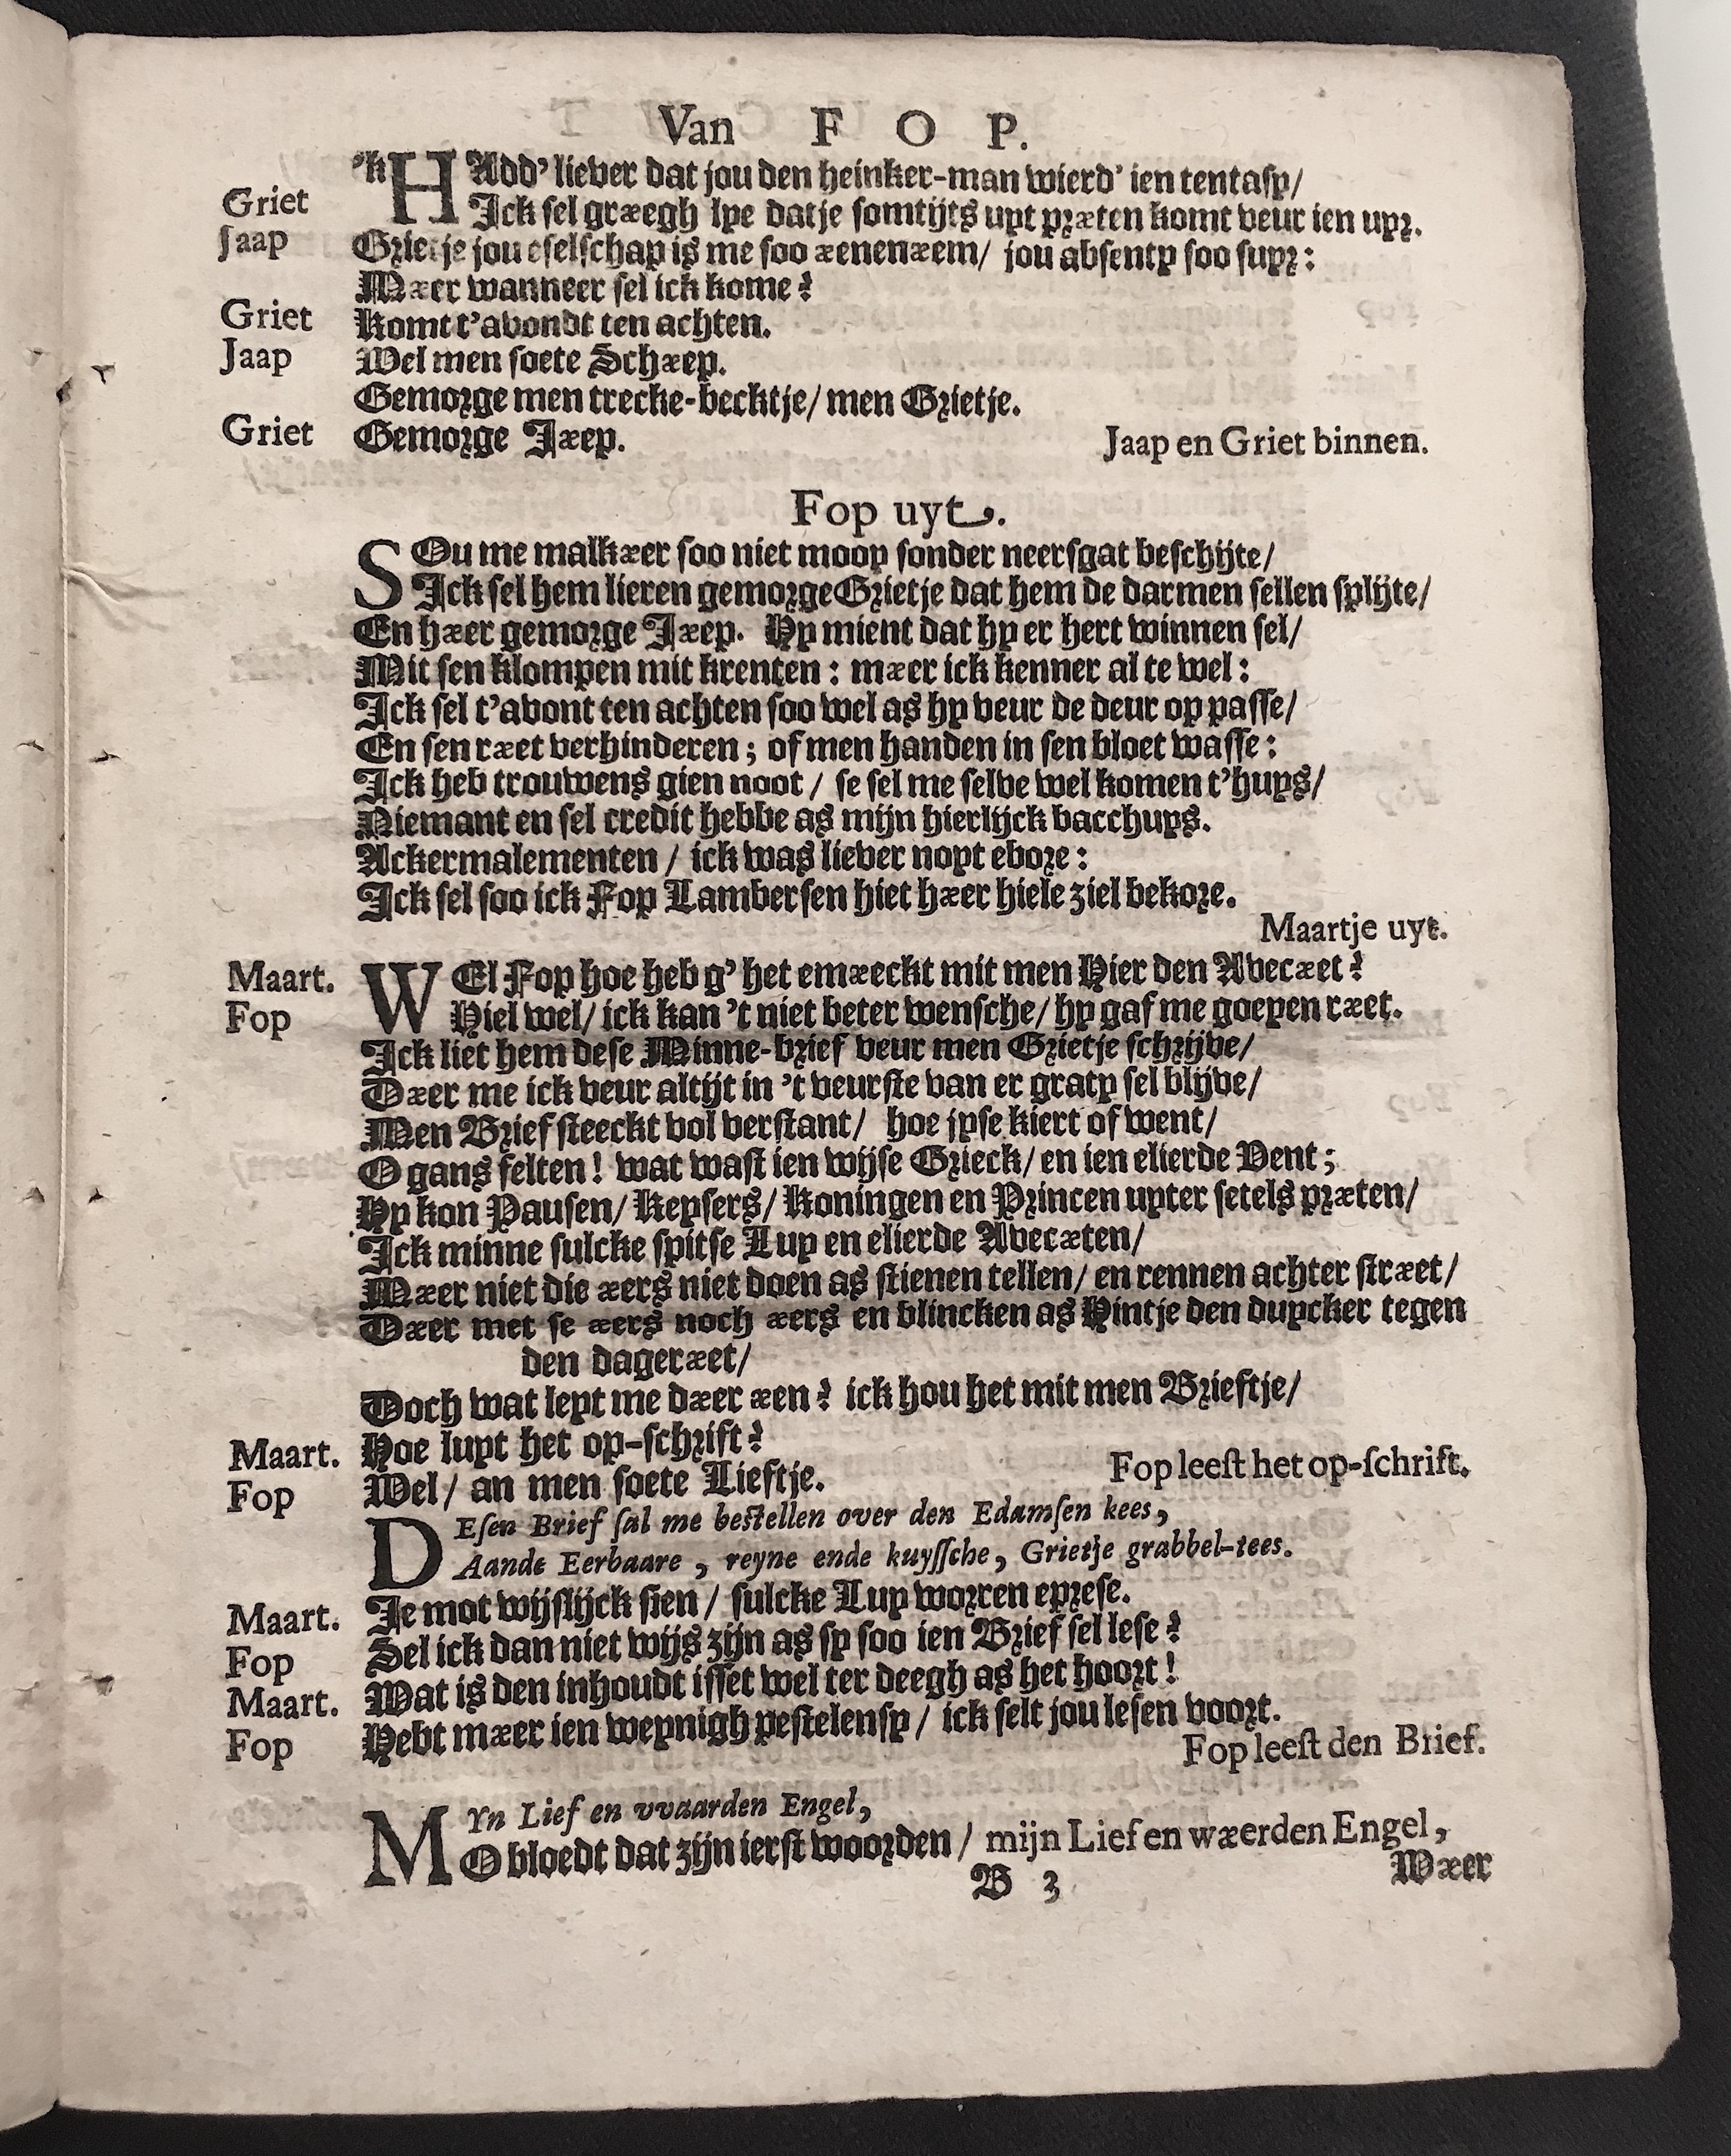 Van F O P.
'k HAdd' liever dat jou den heinker-man wierd' ien tentasy/
Griet Ick sel græegh lye datje somtijts uyt præten komt veur ien uyr.
Jaap Grietje jou eselschap is me soo ænenæem/ jou absenty soo suyr:
Mæer wanneer sel ick kome?
Griet Komt t'avondt ten achten.
Jaap Wel men soete Schæep.
Gemorge men trecke-becktje/ men Grietje.
Griet Gemorge Jæep. Jaap en Griet binnen.
Fop uyt.
SOu me malkæer soo niet mooy sonder neersgat beschijte/
Ick sel hem lieren gemorge Grietje dat hem de darmen sellen splijte/
En hæer gemorge Jæep. Hy mient dat hy er hert winnen sel/
Mit sen klompen mit krenten: mæer ick kenner al te wel:
Ick sel t'avont ten achten soo wel as hy veur de deur op passe/
En sen ræet verhinderen; of men handen in sen bloet wasse:
Ick heb trouwens gien noot/ se sel me selve wel komen t'huys/
Niemant en sel credit hebbe as mijn hierlijck bacchuys.
Ackermalementen/ ick was liever noyt ebore:
Ick sel soo ick Fop Lambersen hiet hæer hiele ziel bekore.
Maartje uyt.
Maart. WEl Fop hoe heb g' het emæeckt mit men Hier den Avecæet?
Fop Hiel wel/ ick kan 't niet beter wensche/ hy gaf me goeyen ræet.
Ick liet hem dese Minne-brief veur men Grietje schrijve/
Dæer me ick veur altijt in 't veurste van er graty sel blijve/
Men Brief steeckt vol verstant/ hoe jyse kiert of went/
O gans felten! wat wast ien wijse Grieck/ en ien elierde Vent;
Hy kon Pausen/ Keysers/ Koningen en Princen uyter setels præten/
Ick minne sulcke spitse Luy en elierde Avecæten/
Mæer niet die æers niet doen as stienen tellen/ en rennen achter stræet/
Dæer met se æers noch æers en blincken as Hintje den duycker tegen
den dageræet/
Doch wat leyt me dæer æen? ick hou het mit men Brieftje/
Maart. Hoe luyt het op-schrift?
Fop Wel/ an men soete Lieftje. Fop leest het op-schrift.
DEsen Brief sal me bestellen over den Edamsen kees,
Aande Eerbaare, reyne ende kuyssche, Grietje grabbel-tees.
Maart. Je mot wijslijck sien/ sulcke Luy worren eprese.
Fop Sel ick dan niet wijs zijn as sy soo ien Brief sel lese?
Maart. Wat is den inhoudt isset wel ter deegh as het hoort!
Fop Hebt mæer ien weynigh pestelensy/ ick selt jou lesen voort.
Fop leest den Brief.
MYn Lief en vvaarden Engel,
O bloedt dat zijn ierst woorden/ mijn Lief en wæerden Engel,
B 3 Wæer